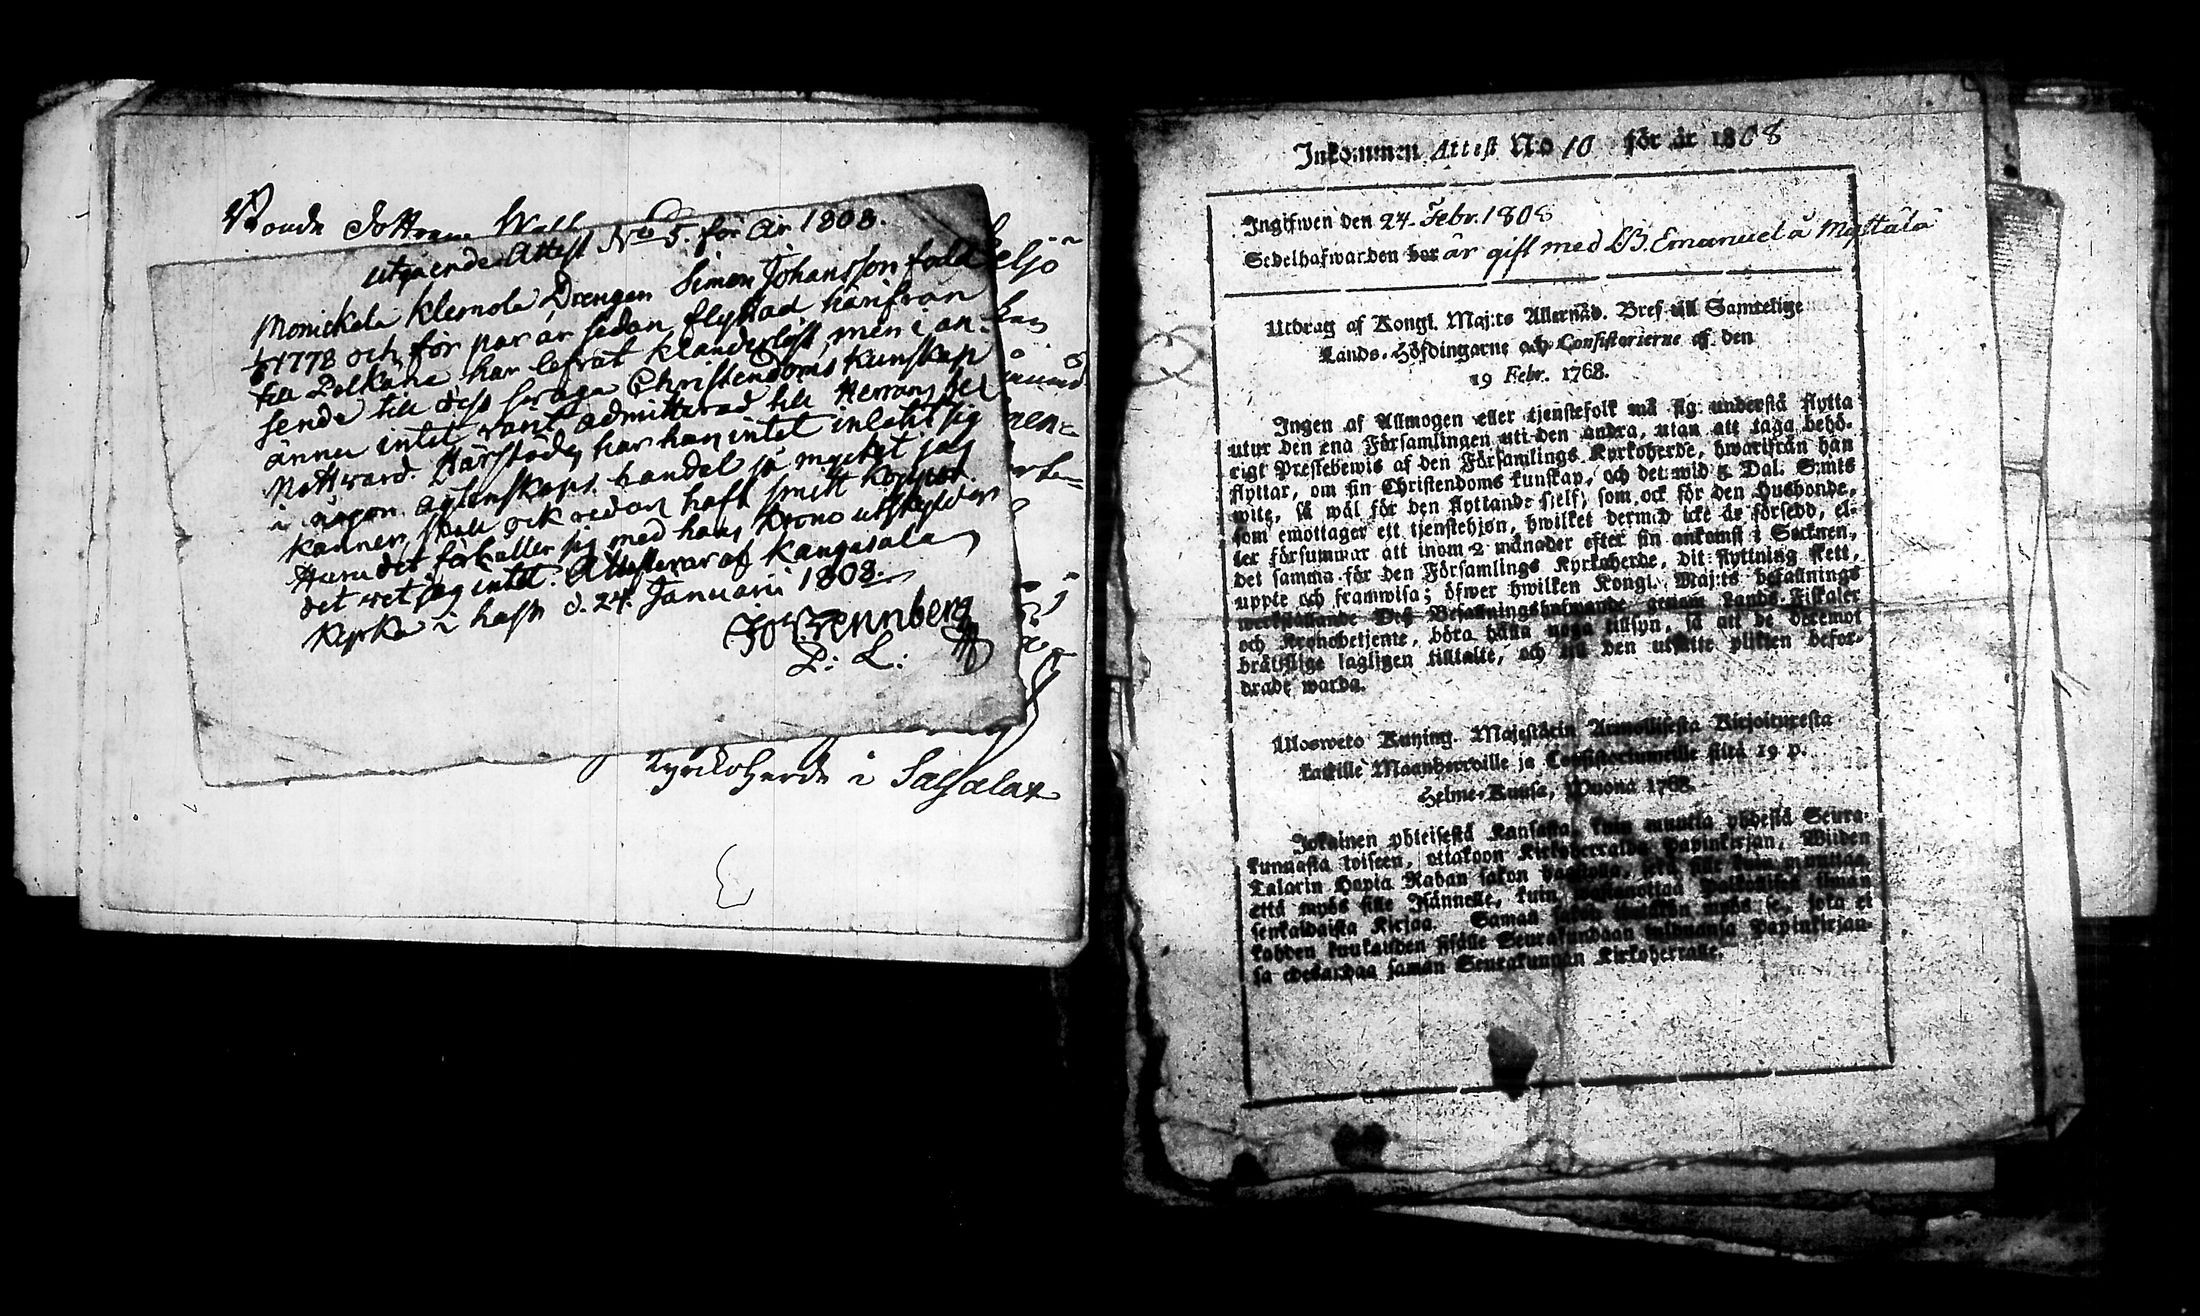 Bonde Dottren
utgående Attest No 5. för år 1808.
Monickala Klemola Drengen Simon Johansson född
1778 och för par år sedan flyttad härifrån
till Pelkäne har lefvat klanderlöst, men i an-
sende till dess svaga Christendoms kunskap
ännu intet varit admitterad till Herrans hel
Nattward. Härstädes har han intet inlåtit sig
i någon ägtenskaps handel så mycket jag
känner, skall ock redan haft smitt koppor.
Huru det förhåller sig med hans krono utskylder
det vet jag intet. Attesterar af Kangasala
Kyrka i hast d. 24. Januarii 1808.
Wennberg
P: L:
eljö
Kyrckoherde i
Inkommen Attest N:o 10 för år 1808
Ingifwen den 24. Febr. 1808
Sedelhafwarden är gift med Emanuel å
Utdrag af Kongl. Maj:ts Allernåd. Bref till Samtelige
Lands-Höfdingarne och Consistorierne af den
19 Febr. 1768.
Ingen af Allmogen eller tjenstefolk må sig understå flytta
utur den ena Församlingen uti den andra, utan att taga behö-
rigt Prestebewis af den Församlings Kyrkoherde, hwarifrån han
flyttar, om sin Christendoms kunskap, och det wid 5 Dal. S:mts
wite, så wäl för den flyttande sjelf, som ock för den Husbonde,
som emottager ett tjenstehjon, hwilket dermed icke är försedd, el-
ler försummar att inom 2 månader efter sin ankomst i Socknen,
det samma för den Församlings Kyrkoherde, dit flyttning skett,
uppte och framwisa; öfwer hwilken Kongl. Maj:ts befallnings
werkställande Dess Befallningshafwande genom Lands-Fiskaler
och Kronobetjente, böra hålla noga tillsyn, så att de deremot
brätslige lagligen tilltalte, och till den utsatte plikten befor-
drade warda.
Ulosweto Kuning. Majestätin Armollisesta Kirjoituxesta
kaikille Maanherroille ja Consistoriumeille siltä 19 p.
Helme-Kuusa, Wuonna 1768.
Jokainen yhteisestä Kansasta, kuin muutta yhdestä Seura-
kunnasta toiseen, ottakoon Kirkoherralda Papinkirjan, Wiiden
Talarin Hopia Rahan sakon haastolla, sekä sille kuin muuttaa,
että myös sille Isännelle, kuin wastanottaa Palkollisen ilman
senkaldaista Kirjaa. Saman sakon myös se, joka ei
kahden kuukauden sisälle Seurakundaan tulduansa Papinkirjan-
sa edeskannaa saman Seurakunnan Kirkoherralle.